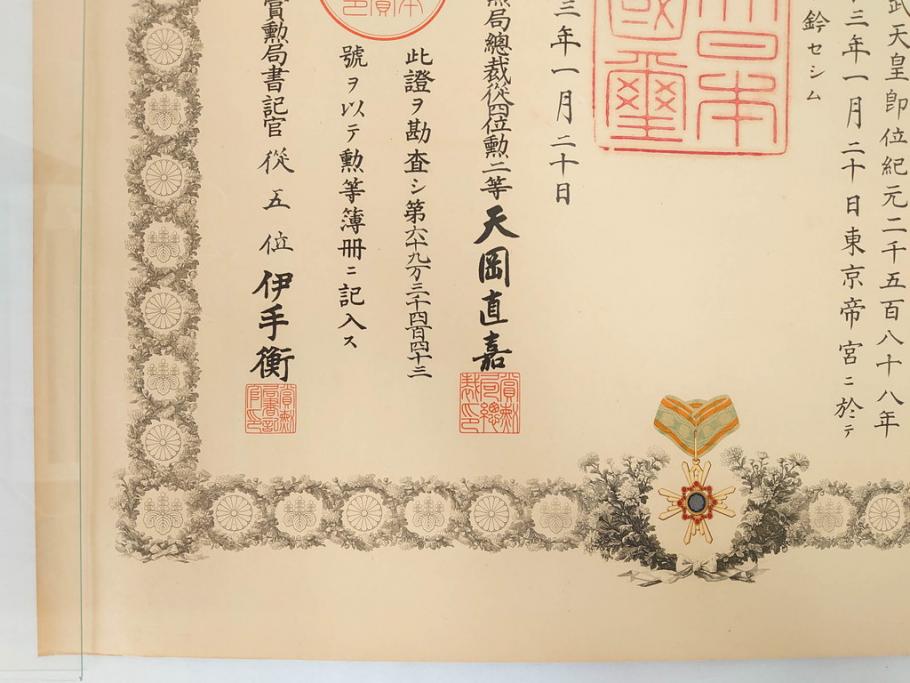 武天皇即位紀元二千五百八十八年
三年一月二十日東京帝宮ニ於テ
鈐セシム
日本
國璽
三年一月二十日
局總裁從四位勳二等天岡直嘉
賞勳局總裁印
此證ヲ勘査シ第六十九万三千四百四十三
號ヲ以テ勳等簿冊ニ記入ス
賞勳局書記官從五位伊手衡
賞勳局書記官印